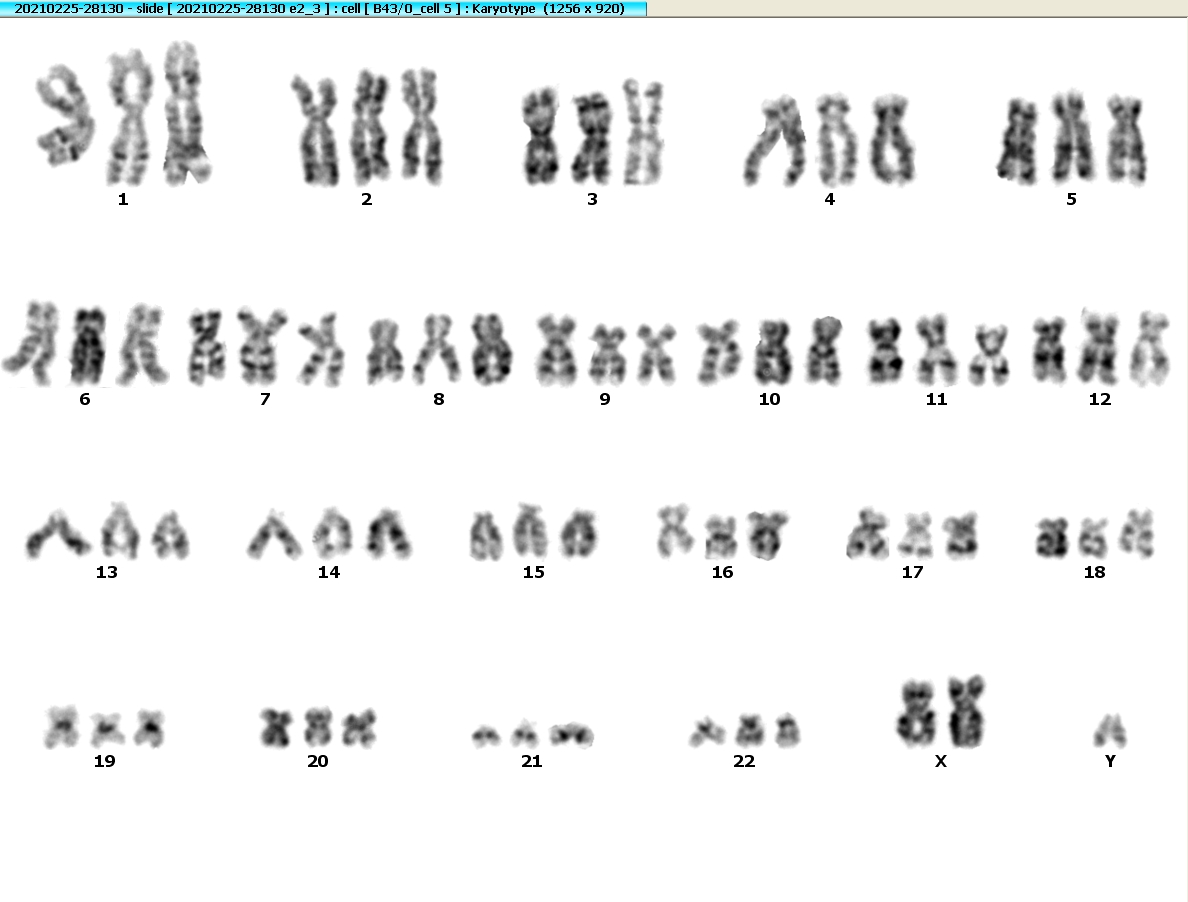 20210225-28130 - slide [ 20210225-28130 e2_3 ] : cell [ B43/0_cell 5 ] : Karyotype (1256 x 920)
1 2 3 4 5
6 7 8 9 10 11 12
13 14 15 16 17 18
19 20 21 22 X Y